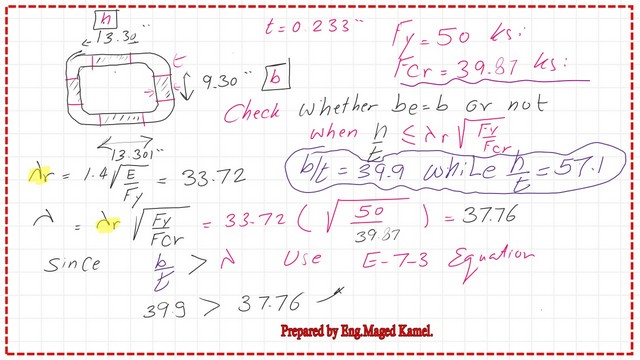 h
13.30"
t = 0.233"
Fy = 50 ksi
t
9.30"
b
Fcr = 39.87 ksi
Check whether be = b or not
when h/t ≤ λr √(Fy/Fcr)
13.301"
b/t = 39.9 while h/t = 57.1
λr = 1.4 √(E/Fy) = 33.72
λ = λr √(Fy/Fcr) = 33.72 ( √(50/39.87) ) = 37.76
Since b/t > λ Use E-7-3 Equation
39.9 > 37.76
Prepared by Eng.Maged Kamel.